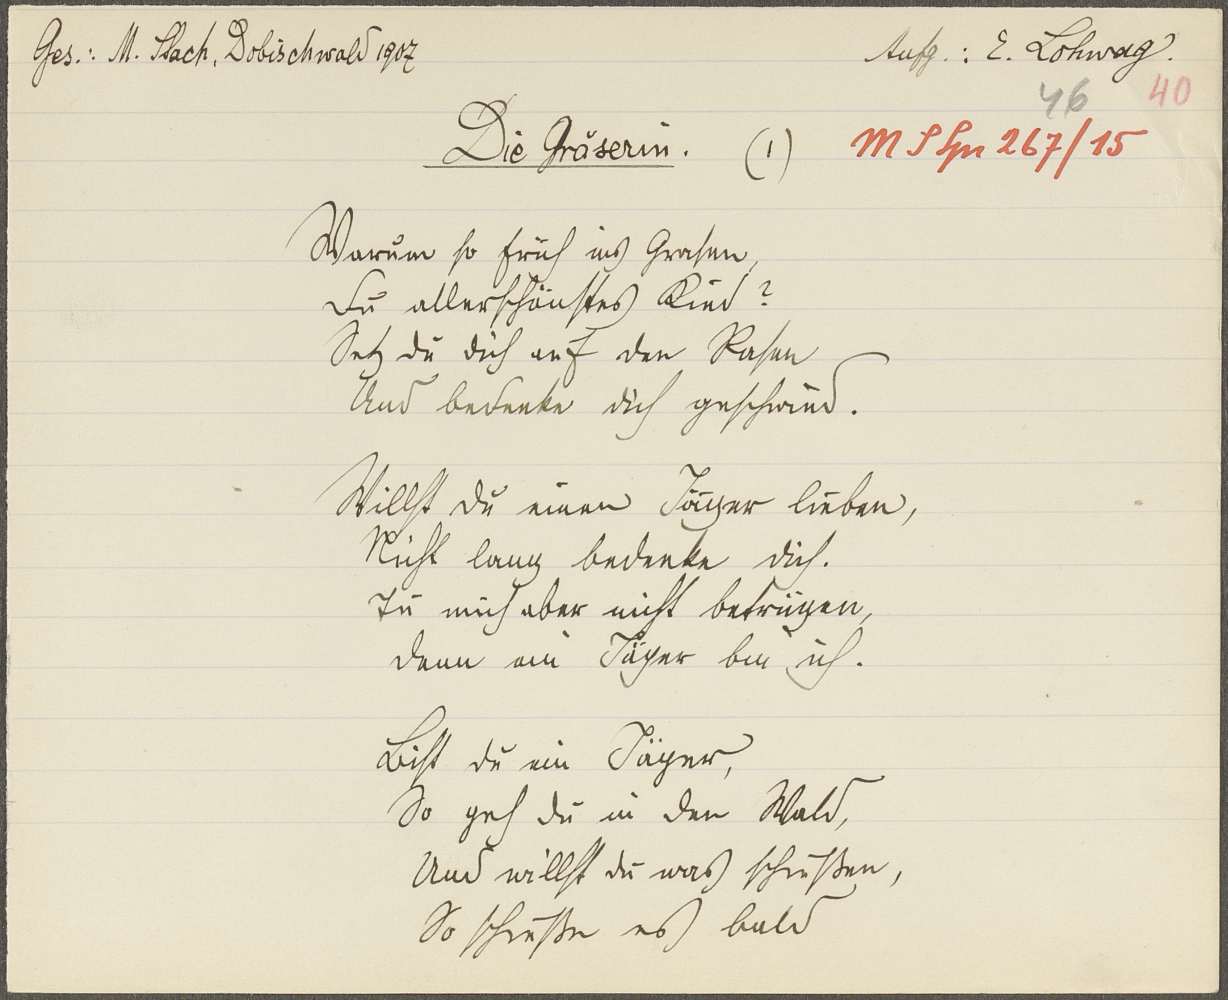 Ges.: M. Stach, Dobischwald 1907
Aufg.: E. Lohwag.
46 40
Die Gräserin. (1) M S Spr 267/15
Warum so früh ins Grasen,
Du allerschönstes Kind?
Setz du dich auf den Rasen
Und bedenke dich geschwind.
Willst du einen Jäger lieben,
Nicht lang bedenke dich.
Tu mich aber nicht betrügen,
denn ein Jäger bin ich.
Bist du ein Jäger,
So geh du in den Wald,
Und willst du was schießen,
So schieße es bald